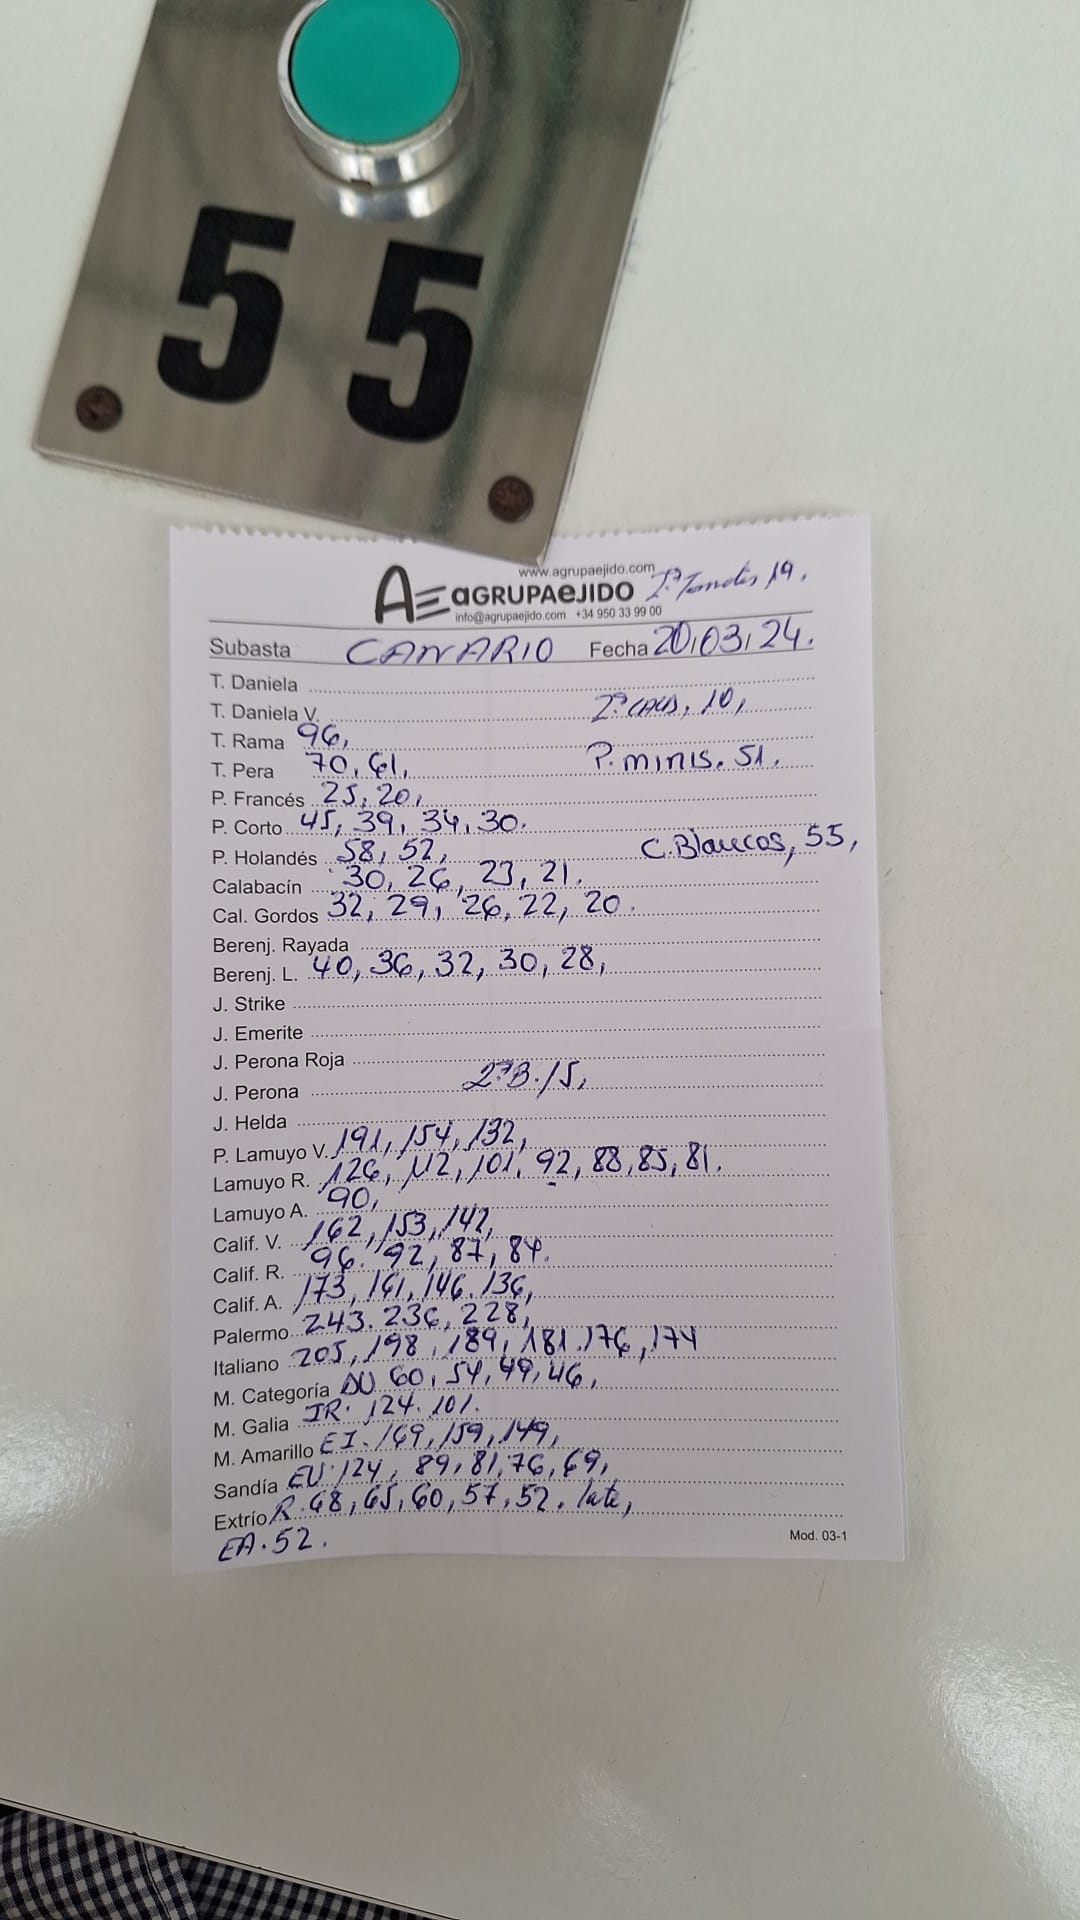 55
www.agrupaejido.com
AGRUPAEJIDO 2ª Tomates 19.
info@agrupaejido.com +34 950 33 99 00
Subasta CANARIO Fecha 20,03,24.
T. Daniela
T. Daniela V. 2ª CALIB, 10,
T. Rama 96,
T. Pera 70, 61, P. minis. 51.
P. Francés 25, 20,
P. Corto 45, 39, 34, 30.
P. Holandés 58, 52, C. Blancos, 55,
Calabacín 30, 26, 23, 21.
Cal. Gordos 32, 29, 26, 22, 20.
Berenj. Rayada
Berenj. L. 40, 36, 32, 30, 28,
J. Strike
J. Emerite
J. Perona Roja
J. Perona 2ª B. 15,
J. Helda
P. Lamuyo V. 191, 154, 132,
Lamuyo R. 126, 112, 101, 92, 88, 85, 81.
Lamuyo A. 90,
Calif. V. 162, 153, 142,
Calif. R. 96. 92, 87, 84.
Calif. A. 173, 161, 146. 136,
Palermo 243. 236, 228,
Italiano 205, 198, 189, 181. 176, 174
M. Categoría DU 60, 54, 49, 46,
M. Galia IR. 124. 101.
M. Amarillo EI. 169, 159, 149,
Sandía EV. 124, 89, 81, 76, 69,
Extrío R. 68, 65, 60, 57, 52. late,
EA. 52.
Mod. 03-1